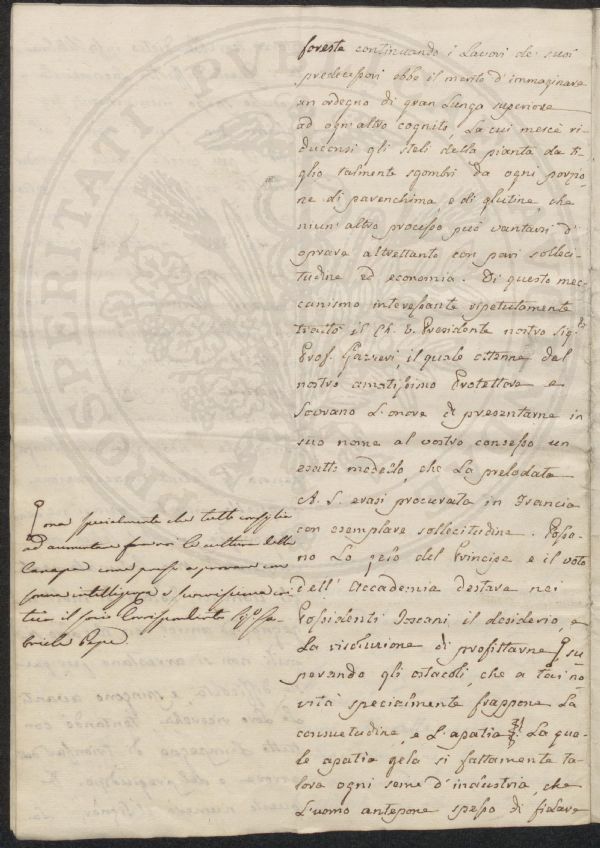 foreste continuando i Lavori de' suoi
predecessori ebbe il merito d'immaginare
un ordegno di gran lunga superiore
ad ogn'altro cognito, La cui mercè ri-
duconsi gli steli della pianta da ti-
glio talmente sgombri da ogni porzio-
ne di parenchima, e di glutine, che
niun'altro processo può vantarsi d'
oprare altrettanto con pari solleci-
tudine ed economia. Di questo mec-
canismo interessante ripetutamente
trattò il Ch. V. Presidente nostro Sig.
Prof. Gazzeri, il quale ottenne dal
nostro amatissimo Protettore e
Sovrano L'onore di presentarne in
suo nome al vostro consesso un
esatto modello, che La prelodata
A. S. erasi procurata in Francia
con esemplare sollecitudine. Possa-
no Lo zelo del Principe e il voto
dell'Accademia destare nei
Possidenti Toscani il desiderio, e
La risoluzione di profittarne su-
perando gli ostacoli, che a tai no-
vità specialmente frappone La
consuetudine, e L'apatia. La qua-
le apatia gela sì fattamente ta-
lora ogni seme d'industria, che
L'uomo antepone spesso di fidare
ora specialmente che tutto consiglia
ad aumentare fra noi la cultura della
Canapa come prese a provare con
somma intelligenza e
il socio Corrispondente Sig.r Ga-
briele Pepe
PROSPERITATI PUBLI